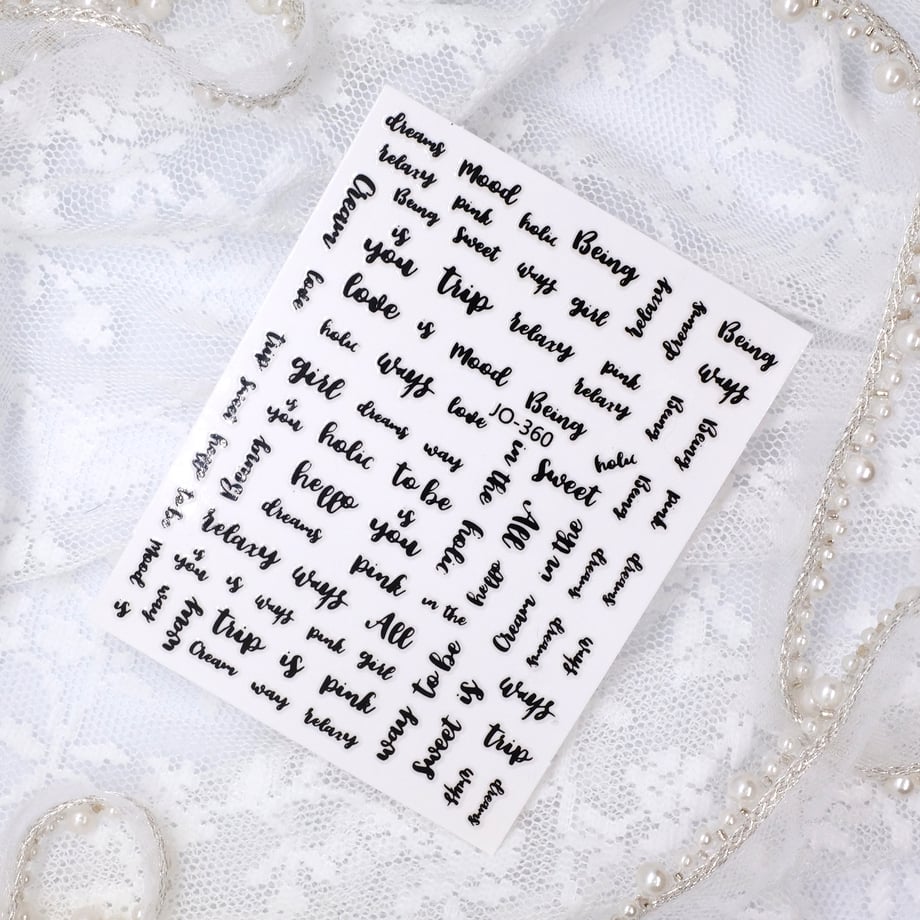 dreams
Mood
relaxy
pink
holic
Being
Cream
Being
Sweet
ways
girl
relaxy
dreams
Being
is
you
trip
relaxy
pink
ways
love
love
is
Mood
relaxy
Being
Being
holic
ways
love
Being
JO-360
holic
Being
pink
trip
Sweet
girl
dreams
way
in the
Sweet
is
you
holic
to be
All
in the
dreams
dreams
hello
to be
Being
hello
is
you
holic
hello
Cream
dreams
ways
dreams
relaxy
ways
pink
in the
Mood
is
you
is
ways
All
to be
is
ways
is
way
way
trip
pink
girl
way
sweet
trip
Cream
is
pink
way
relaxy
ways
dreams